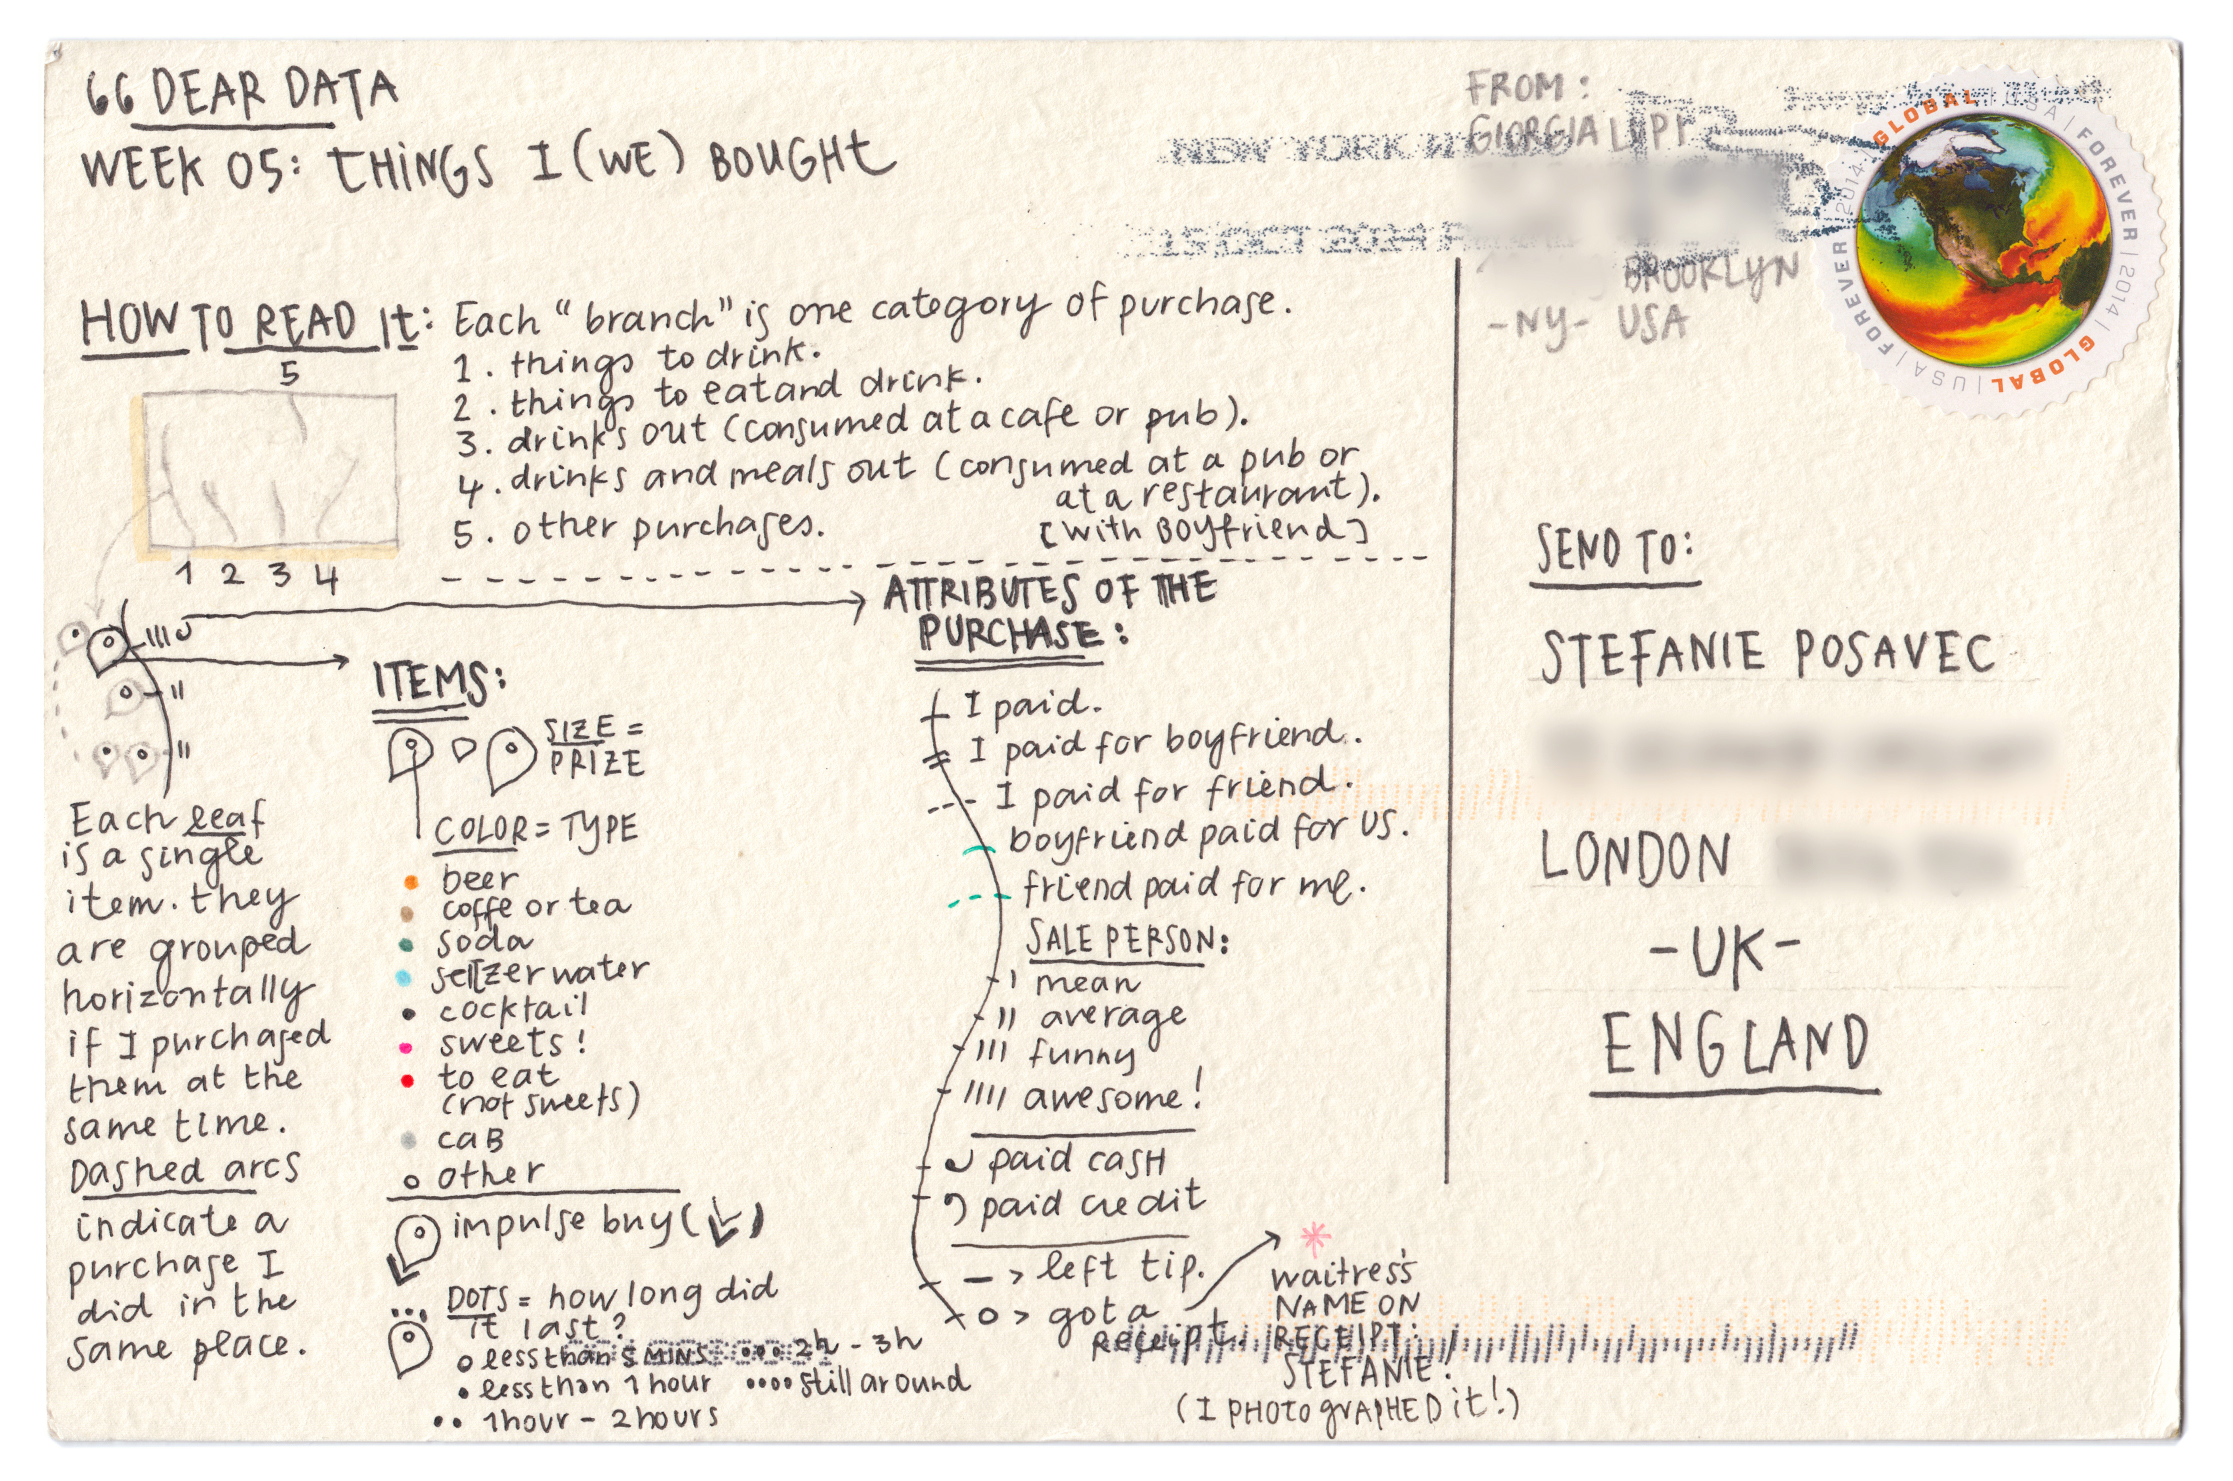 66 DEAR DATA
WEEK 05: THINGS I (WE) BOUGHT
HOW TO READ It: Each "branch" is one category of purchase.
1. things to drink.
2. things to eat and drink.
3. drinks out (consumed at a cafe or pub).
4. drinks and meals out (consumed at a pub or
at a restaurant).
[with Boyfriend]
5. other purchases.
5
1 2 3 4
ATTRIBUTES OF THE
PURCHASE:
ITEMS:
SIZE =
PRIZE
COLOR = TYPE
beer
coffe or tea
soda
seltzer water
cocktail
sweets!
to eat
(not sweets)
caB
other
impulse buy ( )
DOTS = how long did
it last?
less than 5 MINS
less than 1 hour
1 hour - 2 hours
2h - 3h
still around
Each leaf
is a single
item. they
are grouped
horizontally
if I purchased
them at the
same time.
Dashed arcs
indicate a
purchase I
did in the
same place.
I paid.
I paid for boyfriend.
I paid for friend.
boyfriend paid for US.
friend paid for me.
SALE PERSON:
mean
average
funny
awesome!
paid casH
paid credit
— > left tip.
o > got a
receipt.
waitress's
NAME ON
RECEIPT:
STEFANIE!
(I PHOTOgRAPHED it!)
FROM:
GIORGIA LUPI
BROOKLYN
-NY- USA
NEW YORK
15 OCT 2014 P
GLOBAL | USA | FOREVER | 2014 | GLOBAL | USA | FOREVER 2014
SEND TO:
STEFANIE POSAVEC
LONDON
-UK-
ENGLAND